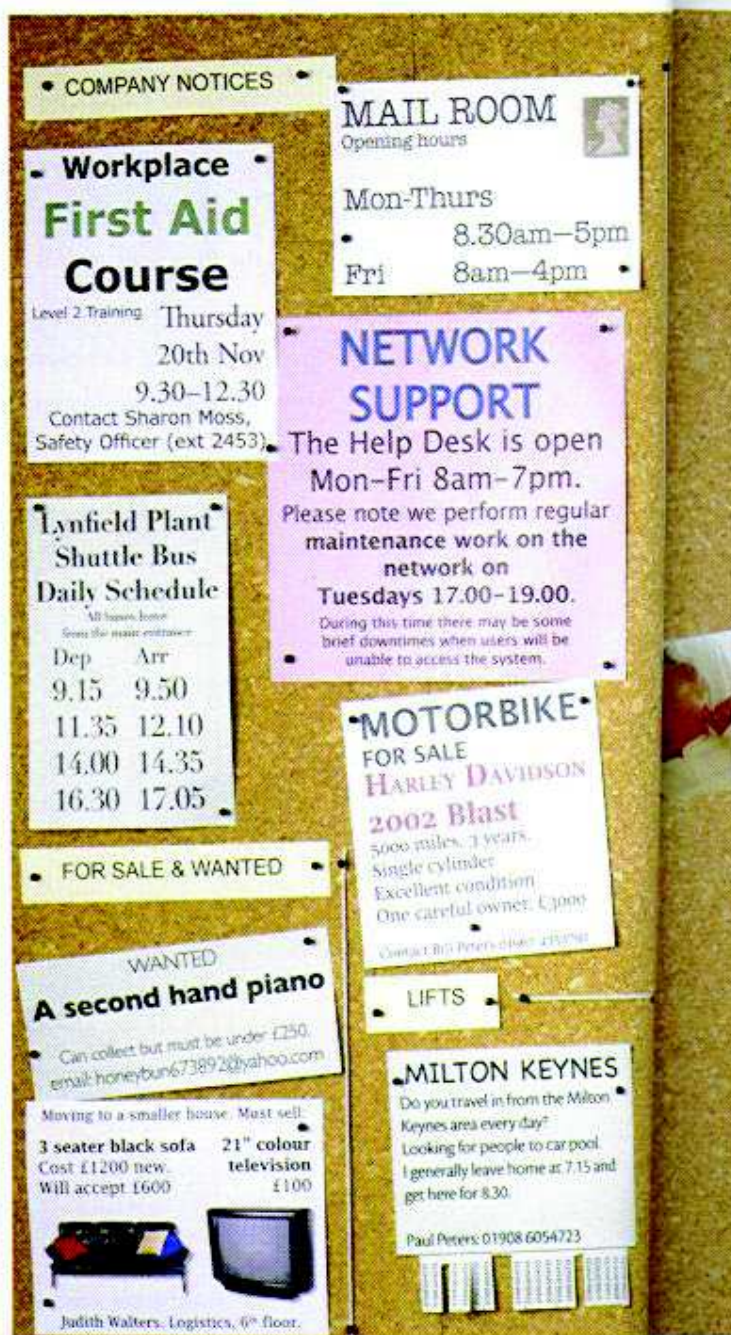 COMPANY NOTICES
Workplace
First Aid
Course
Level 2 Training Thursday
20th Nov
9.30–12.30
Contact Sharon Moss,
Safety Officer (ext 2453)
MAIL ROOM
Opening hours
Mon-Thurs
8.30am—5pm
Fri 8am—4pm
NETWORK
SUPPORT
The Help Desk is open
Mon–Fri 8am–7pm.
Please note we perform regular
maintenance work on the
network on
Tuesdays 17.00–19.00.
During this time there may be some
brief downtimes when users will be
unable to access the system.
Lynfield Plant
Shuttle Bus
Daily Schedule
All buses leave
from the main entrance
Dep Arr
9.15 9.50
11.35 12.10
14.00 14.35
16.30 17.05
MOTORBIKE
FOR SALE
HARLEY DAVIDSON
2002 Blast
5000 miles, 3 years.
Single cylinder
Excellent condition
One careful owner. £3000
Contact Peters
FOR SALE & WANTED
WANTED
A second hand piano
Can collect but must be under £250.
email: honeybun673892@yahoo.com
Moving to a smaller house. Must sell:
3 seater black sofa
Cost £1200 new.
Will accept £600
21" colour
television
£100
Judith Walters. Logistics, 6th floor.
LIFTS
MILTON KEYNES
Do you travel in from the Milton
Keynes area every day?
Looking for people to car pool.
I generally leave home at 7.15 and
get here for 8.30.
Paul Peters: 01908 6054723